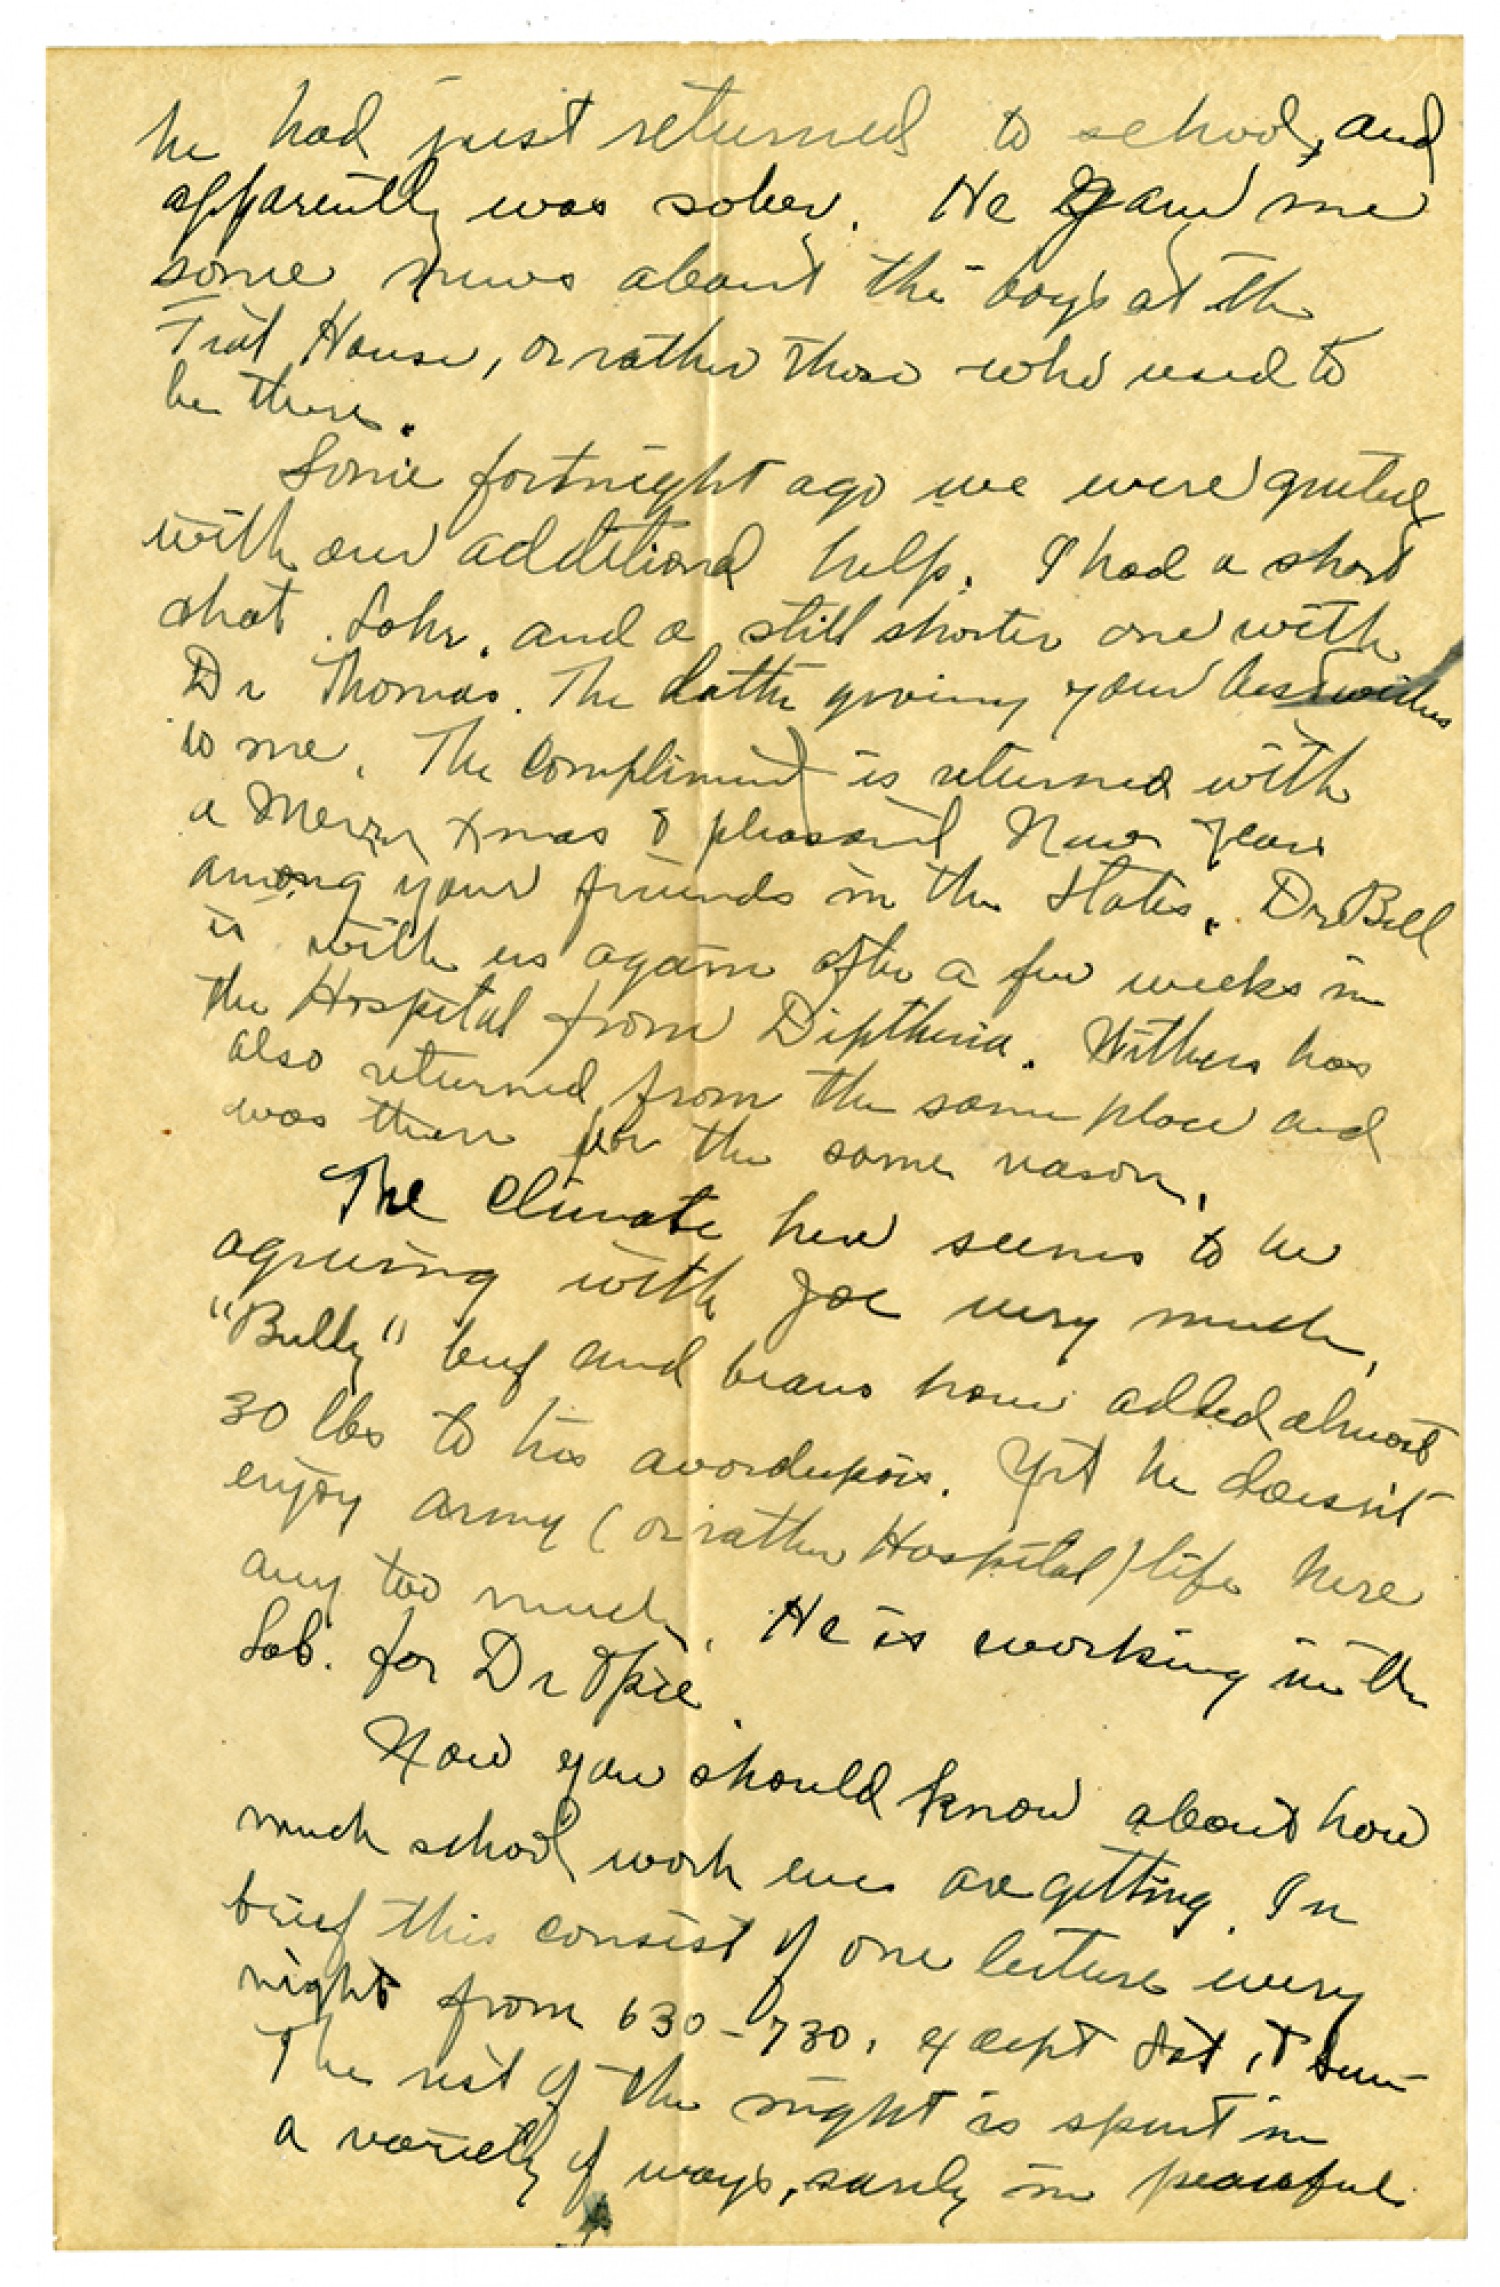 he had just returned to school, and
apparently was sober. He gave me
some news about the boys at the
Frat House, or rather those who used to
be there.
Some fortnight ago we were greeted
with our additional help. I had a short
chat . Lohr. and a still shorter one with
Dr Thomas. The latter giving your best wishes
to me. The compliment is returned with
a Merry Xmas & pleasant New Year
among your friends in the States. Dr Bell
is with us again after a few weeks in
the Hospital from Diptheria. Withers has
also returned from the same place and
was there for the same reason.
The climate here seems to be
agreeing with Joe very much,
"Bully" beef and beans have added almost
30 lbs to his avordupois. Yet he doesn't
enjoy army (or rather Hospital) life here
any too much. He is working in the
Lab. for Dr Opie.
Now you should know about how
much school work we are getting. In
brief this consist of one lecture every
night from 630-730, except Sat, & Sun
The rest of the night is spent in
a variety of ways, rarely in peaceful